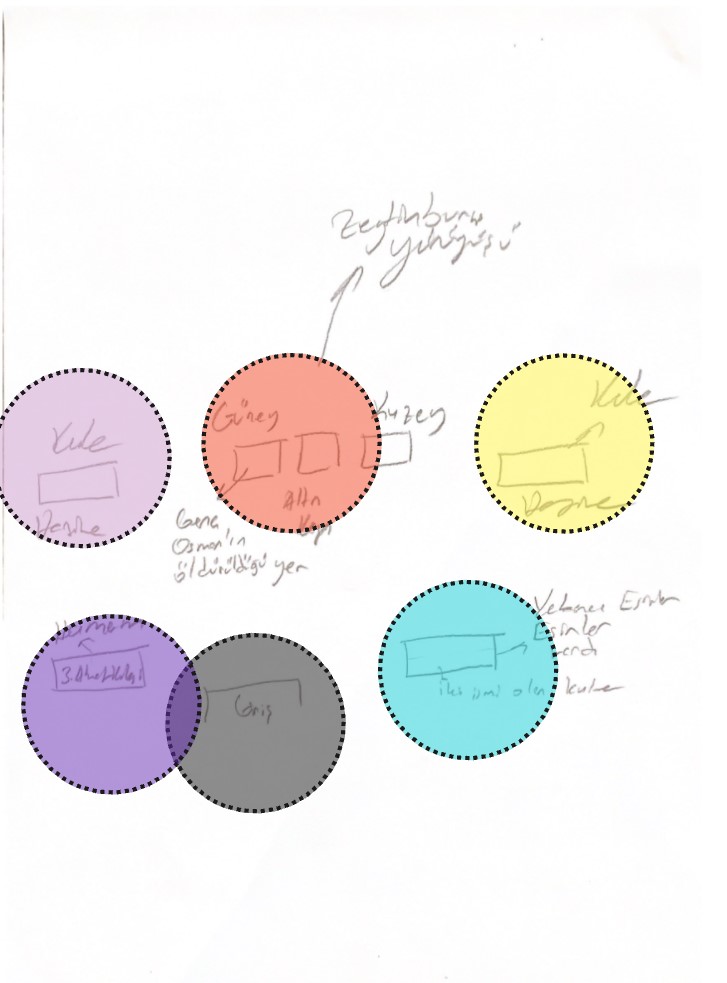 Zeytinburnu
yürüyüşü
Kule
Hazine
Güney
Kuzey
Altın
Kapı
Genç
Osman'ın
öldürüldüğü yer
Kule
Hazine
3. Ahmet Kulesi
Giriş
Yabancı Esirler
Esirler
iki ismi olan kule